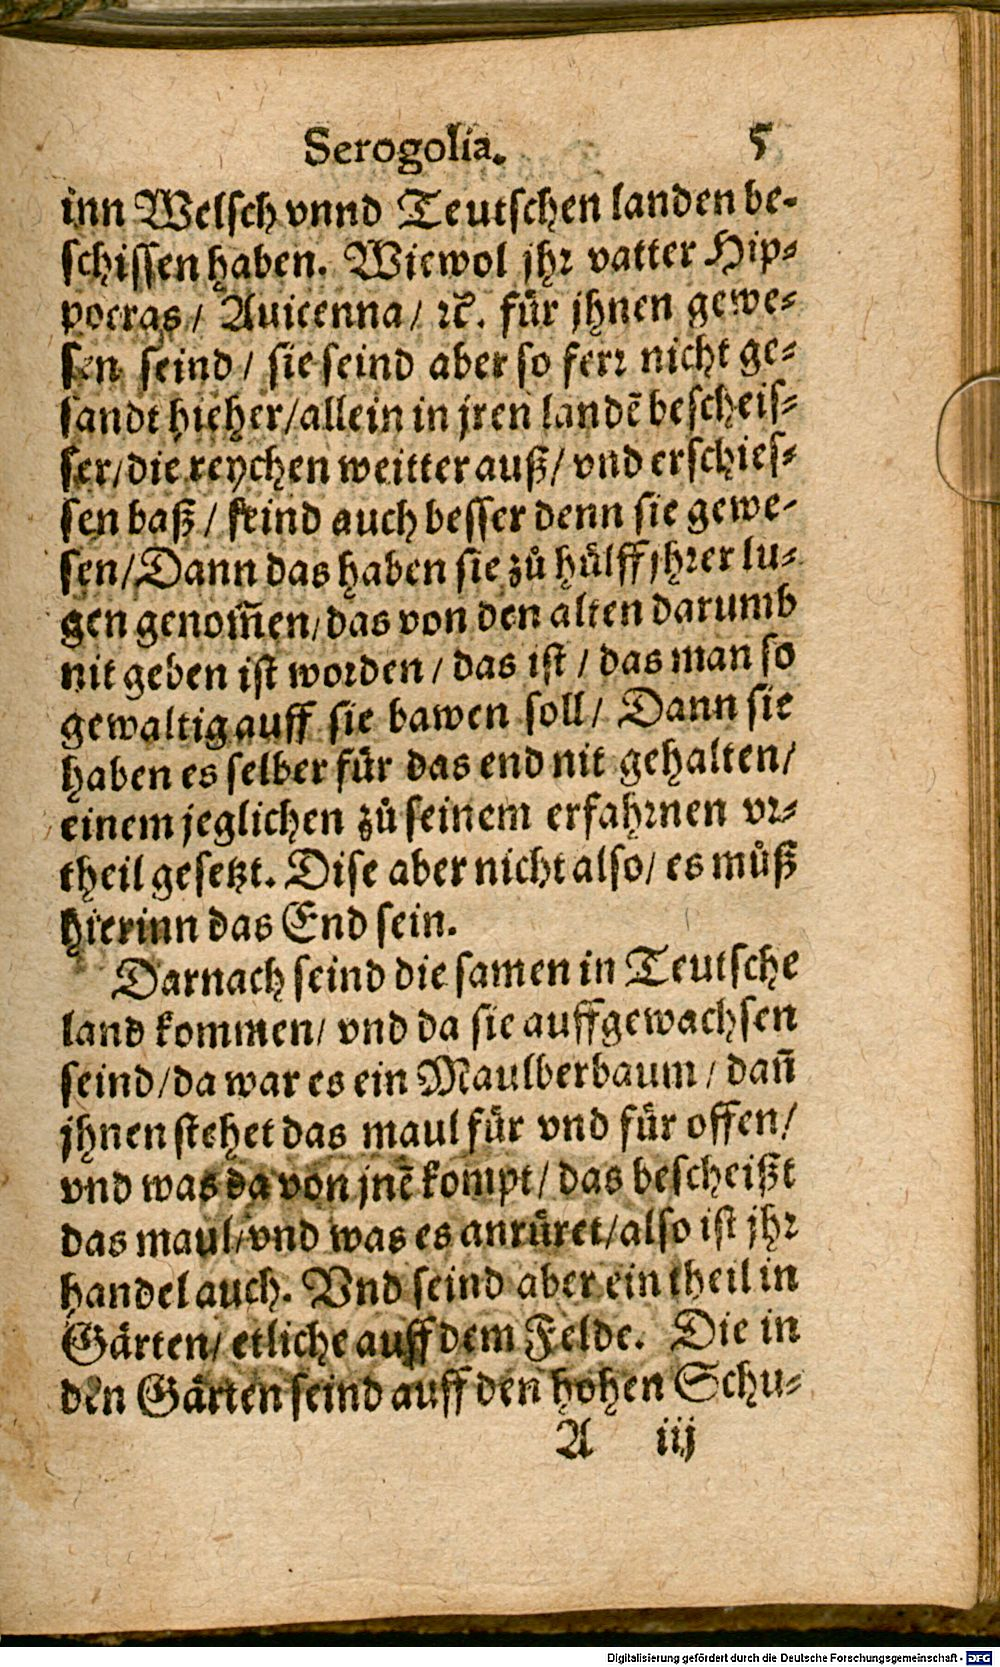 Serogolia. 5
inn Welsch vnnd Teutschen landen be-
schissen haben. Wiewol jhr vatter Hip-
pocras/ Auicenna/ ꝛc. für jhnen gewe-
sen seind/ sie seind aber so ferr nicht ge-
sandt hieher/allein in jren landē bescheis-
ser/die reychen weitter auß/ vnd erschies-
sen baß/ seind auch besser denn sie gewe-
sen/Dann das haben sie zů hülff jhrer lu-
gen genom̃en/das von den alten darumb
nit geben ist worden/ das ist/ das man so
gewaltig auff sie bawen soll/ Dann sie
haben es selber für das end nit gehalten/
einem jeglichen zů seinem erfahrnen vr-
theil gesetzt. Dise aber nicht also/ es můß
hierinn das End sein.
Darnach seind die samen in Teutsche
land kommen/ vnd da sie auffgewachsen
seind/da war es ein Maulberbaum/ dañ
jhnen stehet das maul für vnd für offen/
vnd was da von jnē kompt/ das bescheißt
das maul/vnd was es anrüret/also ist jhr
handel auch. Vnd seind aber ein theil in
Gärten/ etliche auff dem Felde. Die in
den Gärten seind auff den hohen Schu-
A iij
Digitalisierung gefördert durch die Deutsche Forschungsgemeinschaft - DFG